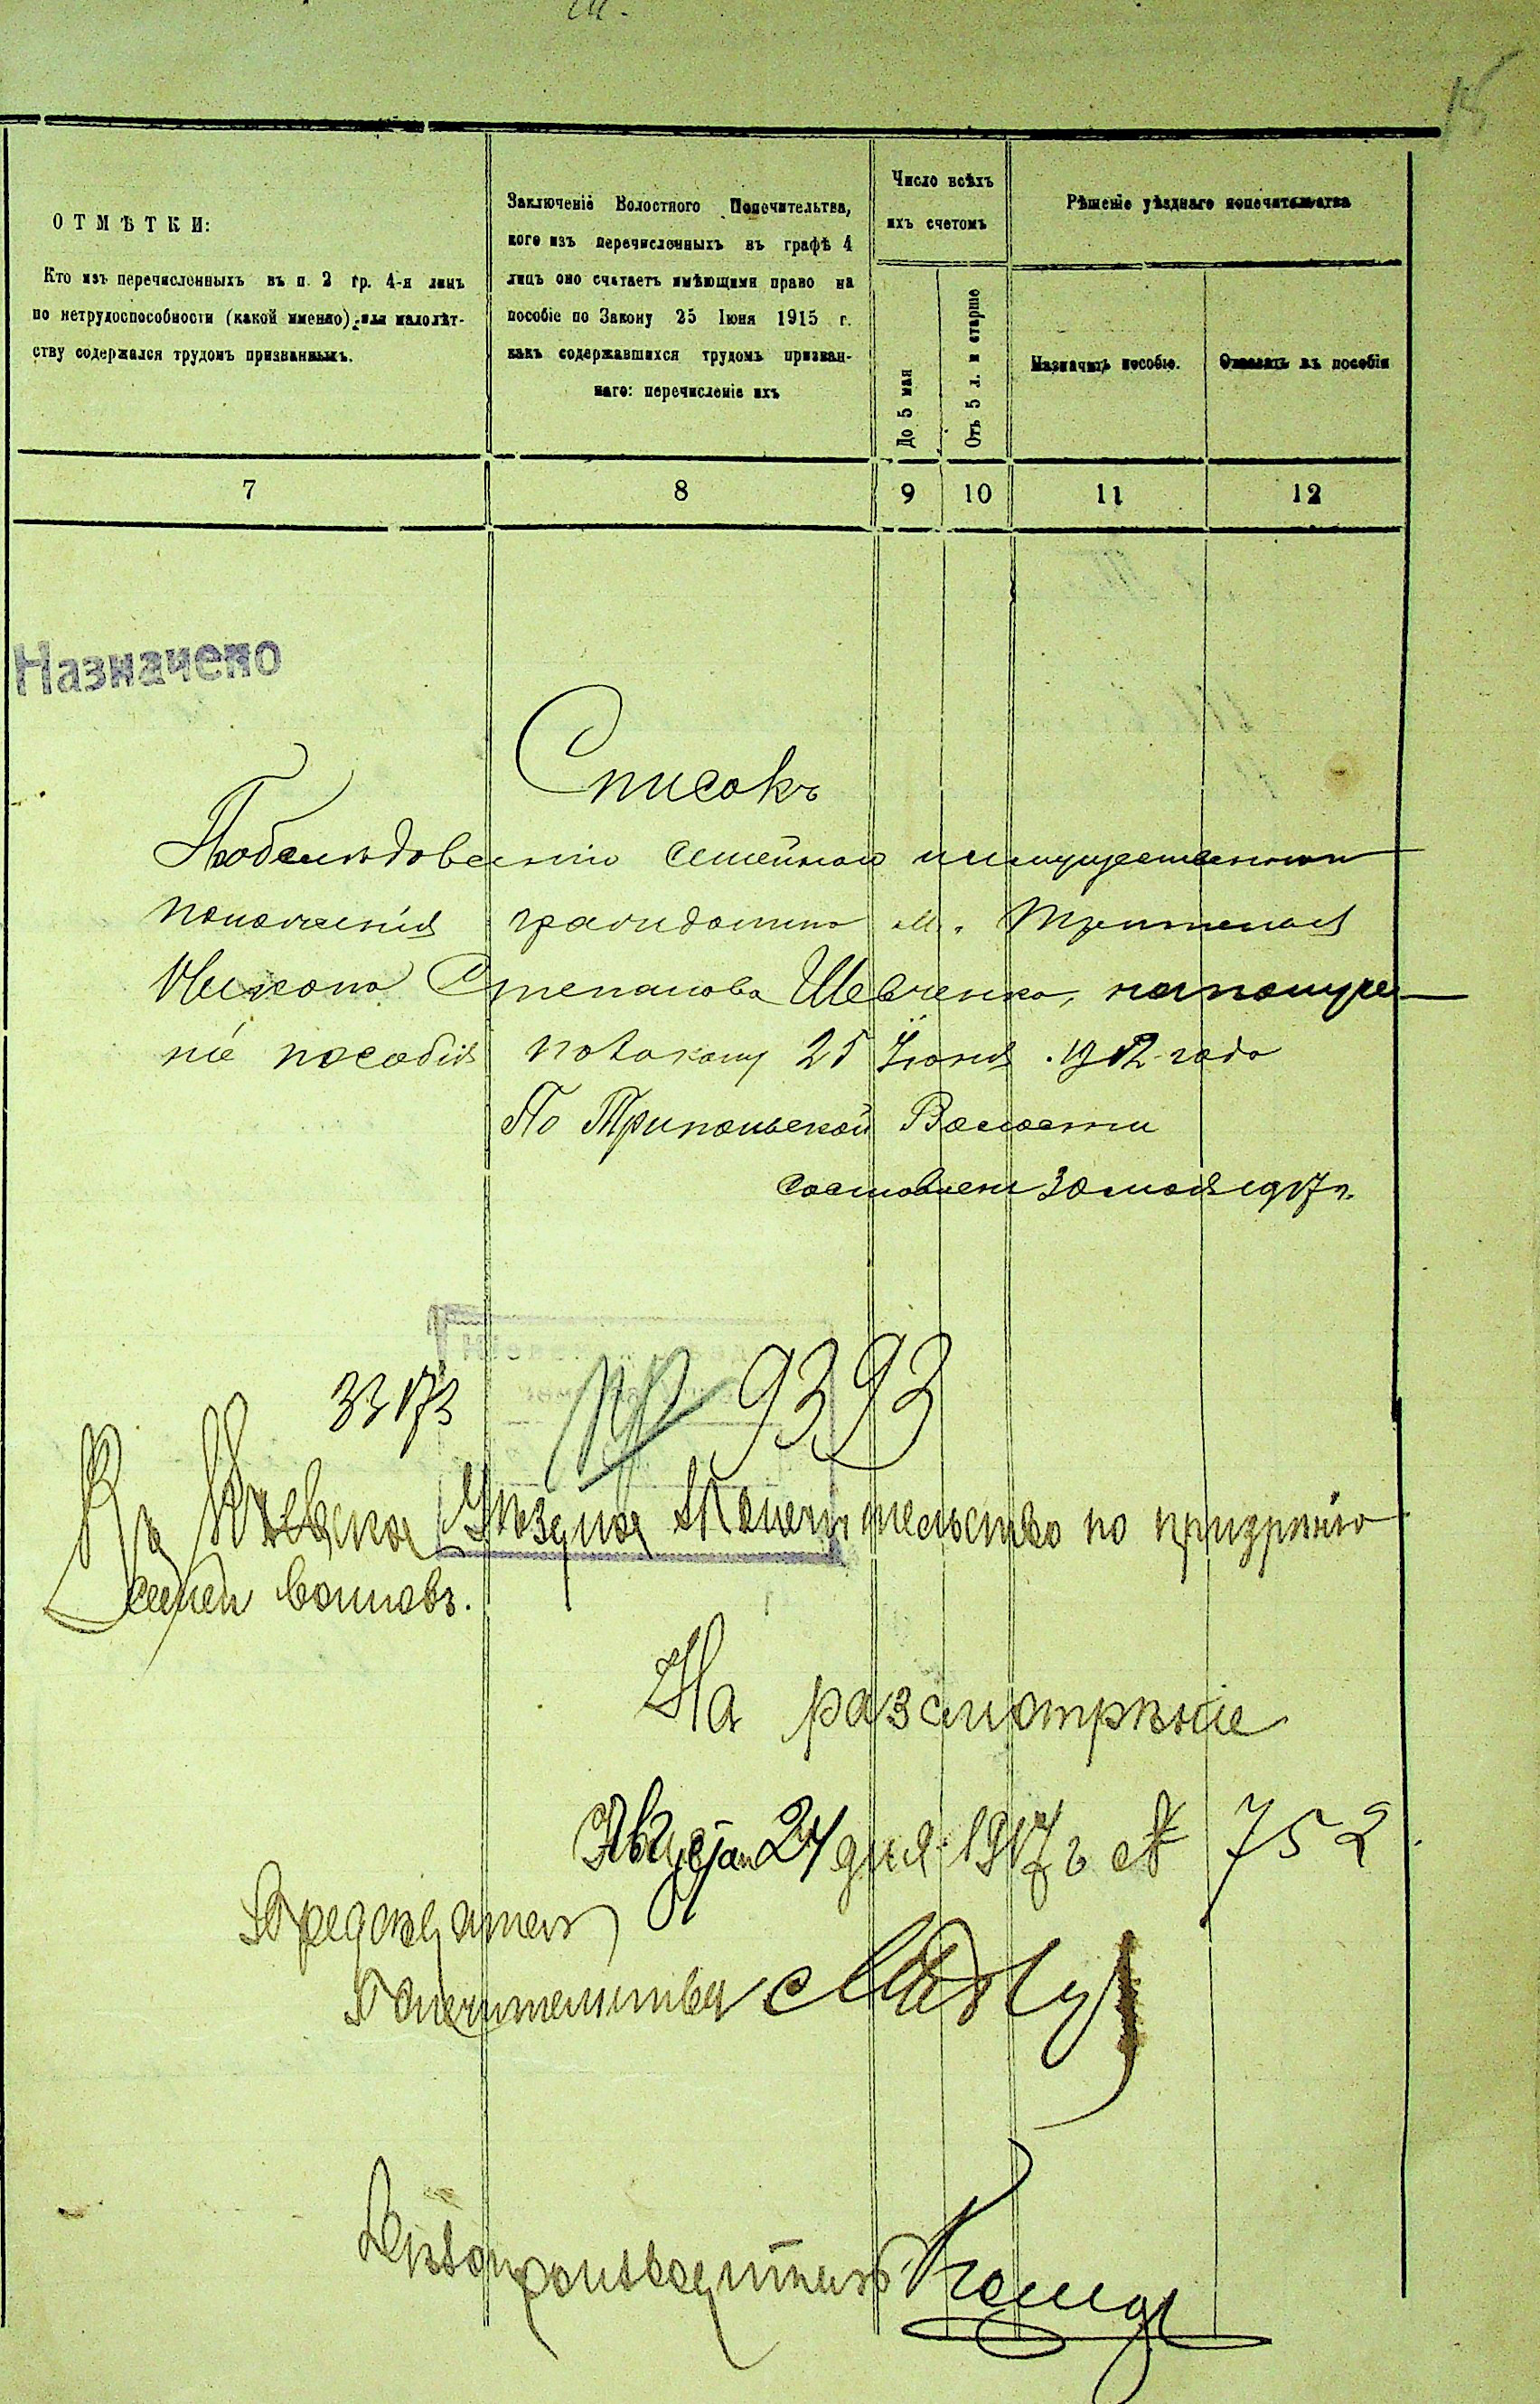 15
ОТМѢТКИ:
Кто изъ перечисленныхъ въ п. 2 гр. 4-я лицъ
по нетрудоспособности (какой именно) или малолѣт-
ству содержался трудомъ призванныхъ.
Заключеніе Волостного Попечительтва,
кого изъ перечисленныхъ въ графѣ 4
лицъ оно считаетъ имѣющими право на
пособіе по Закону 25 Іюня 1915 г.
какъ содержавшихся трудомъ призван-
наго: перечисленіе ихъ
Число всѣхъ
ихъ счетомъ
До 5 мая
Отъ 5 л. и старше
Рѣшеніе уѣзднаго попечительства
Назначить пособіе.
Отказать въ пособіи
7 8 9 10 11 12
Назначено
Списокъ
семейнаго имущественнаго
положенія гражданина м. Триполья
Степанова Шевченко, на получе-
ніе пособія по закону 25 Іюня 1912 года
По Трипольской Волости
составленъ 30 мая 1917 г.
33173
№ 9393
Въ Кіевское Уѣздное Попечительство по призрѣнію
семей воиновъ.
На разсмотрѣніе
Августа 24 дня 1917 г № 752
Предсѣдатель
Попечительства
Дѣлопроизводитель